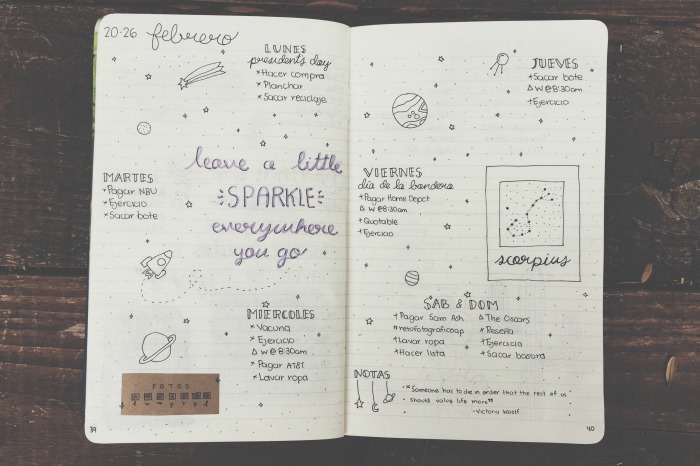 20-26 febrero
LUNES
president's day
×Hacer compra
×Planchar
×Sacar reciclaje
MARTES
×Pagar NBU
×Ejercicio
×Sacar bote
leave a little
SPARKLE
everywhere
you go
MIERCOLES
×Vacuna
×Ejercicio
Δ W@8:30am
×Pagar AT&T
×Lavar ropa
FOTOS
39
JUEVES
+Sacar bote
Δ W@8:30am
+Ejercicio
VIERNES
día de la bandera
+Pagar Home Depot
Δ W@8:30am
+Quotable
+Ejercicio
scorpius
SAB & DOM
+Pagar Sam Ash
#retofotograficoap
+Lavar ropa
+Hacer lista
Δ The Oscars
×Reseña
+Ejercicio
×Sacar basura
NOTAS
-"Someone has to die in order that the rest of us
should value life more"
-Victoria Woolf
40